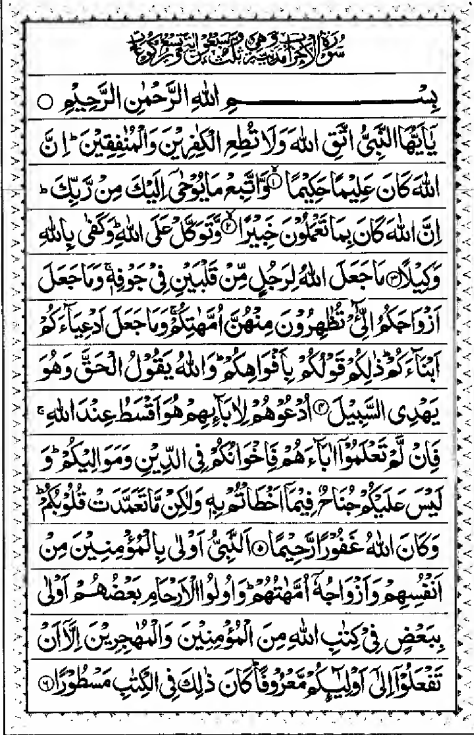 سورة الاحزاب مدنية وهي ثلث وسبعون اية وتسع ركوعات
بِسْمِ اللهِ الرَّحْمٰنِ الرَّحِيْمِ ○
يٰۤاَيُّهَا النَّبِيُّ اتَّقِ اللهَ وَلَا تُطِعِ الْكٰفِرِيْنَ وَالْمُنٰفِقِيْنَ ؕ اِنَّ
اللهَ كَانَ عَلِيْمًا حَكِيْمًا ۙ﴿۱﴾ وَّاتَّبِعْ مَا يُوْحٰۤى اِلَيْكَ مِنْ رَّبِّكَ ؕ
اِنَّ اللهَ كَانَ بِمَا تَعْمَلُوْنَ خَبِيْرًا ۙ﴿۲﴾ وَّتَوَكَّلْ عَلَى اللهِ ؕ وَكَفٰى بِاللهِ
وَكِيْلًا ﴿۳﴾ مَا جَعَلَ اللهُ لِرَجُلٍ مِّنْ قَلْبَيْنِ فِيْ جَوْفِهٖ ۚ وَمَا جَعَلَ
اَزْوَاجَكُمُ الّٰٓـِٔيْ تُظٰهِرُوْنَ مِنْهُنَّ اُمَّهٰتِكُمْ ۚ وَمَا جَعَلَ اَدْعِيَآءَكُمْ
اَبْنَآءَكُمْ ؕ ذٰلِكُمْ قَوْلُكُمْ بِاَفْوَاهِكُمْ ؕ وَاللهُ يَقُوْلُ الْحَقَّ وَهُوَ
يَهْدِى السَّبِيْلَ ﴿۴﴾ اُدْعُوْهُمْ لِاٰبَآئِهِمْ هُوَ اَقْسَطُ عِنْدَ اللهِ ۚ
فَاِنْ لَّمْ تَعْلَمُوْۤا اٰبَآءَهُمْ فَاِخْوَانُكُمْ فِى الدِّيْنِ وَمَوَالِيْكُمْ ؕ وَ
لَيْسَ عَلَيْكُمْ جُنَاحٌ فِيْمَاۤ اَخْطَاْتُمْ بِهٖ وَلٰكِنْ مَّا تَعَمَّدَتْ قُلُوْبُكُمْ ؕ
وَكَانَ اللهُ غَفُوْرًا رَّحِيْمًا ﴿۵﴾ اَلنَّبِيُّ اَوْلٰى بِالْمُؤْمِنِيْنَ مِنْ
اَنْفُسِهِمْ وَاَزْوَاجُهٗۤ اُمَّهٰتُهُمْ ؕ وَاُولُوا الْاَرْحَامِ بَعْضُهُمْ اَوْلٰى
بِبَعْضٍ فِيْ كِتٰبِ اللهِ مِنَ الْمُؤْمِنِيْنَ وَالْمُهٰجِرِيْنَ اِلَّاۤ اَنْ
تَفْعَلُوْۤا اِلٰۤى اَوْلِيٰٓئِكُمْ مَّعْرُوْفًا ؕ كَانَ ذٰلِكَ فِى الْكِتٰبِ مَسْطُوْرًا ﴿۶﴾